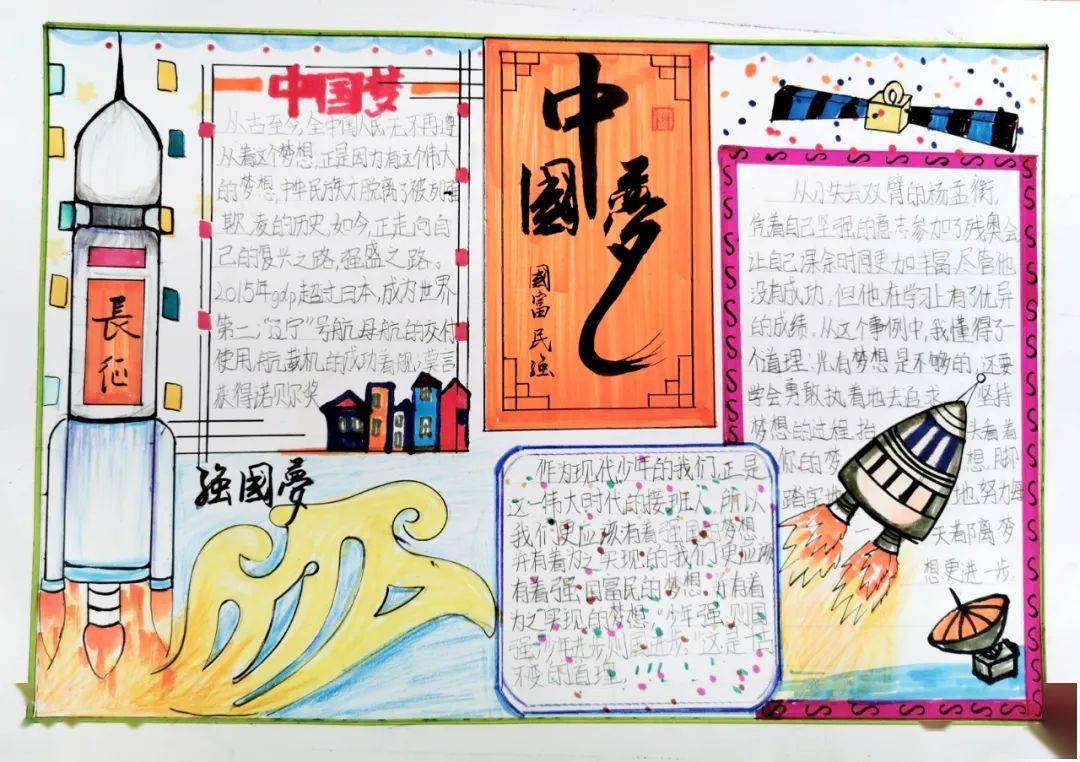 中国梦
从古至今,全中国人民,无不再遵
从着这个梦想,正是因为有这个伟大
的梦想,中华民族才脱离了被列强
欺凌的历史,如今,正走向自
己的复兴之路,强盛之路。
2015年gdp超过日本,成为世界
第二;“辽宁”号航母航的交付
使用,航载机的成功着舰;莫言
获得诺贝尔奖
長征
强國夢
中國夢
國富民強
从小失去双臂的杨孟衡,
凭着自己坚强的意志参加了残奥会
让自己课余时间更加丰富,尽管他
没有成功,但他在学习上有了优异
的成绩,从这个事例中,我懂得了一
个道理:光有梦想是不够的,还要
学会勇敢执着地去追求 坚持
梦想的过程,抬 头看着
你的梦 想,脚
踏实地 地,努力每
天着都离梦
想更进一步。
作为现代少年的我们,正是
这一伟大时代的接班人,所以
我们更应该有着强国的梦想
并有着为之实现的我们更应该
有着强国富民的梦想,才有着
为之实现的梦想,“少年强,则国
强;少年进步则国进步,”这是千古
不变的真理。